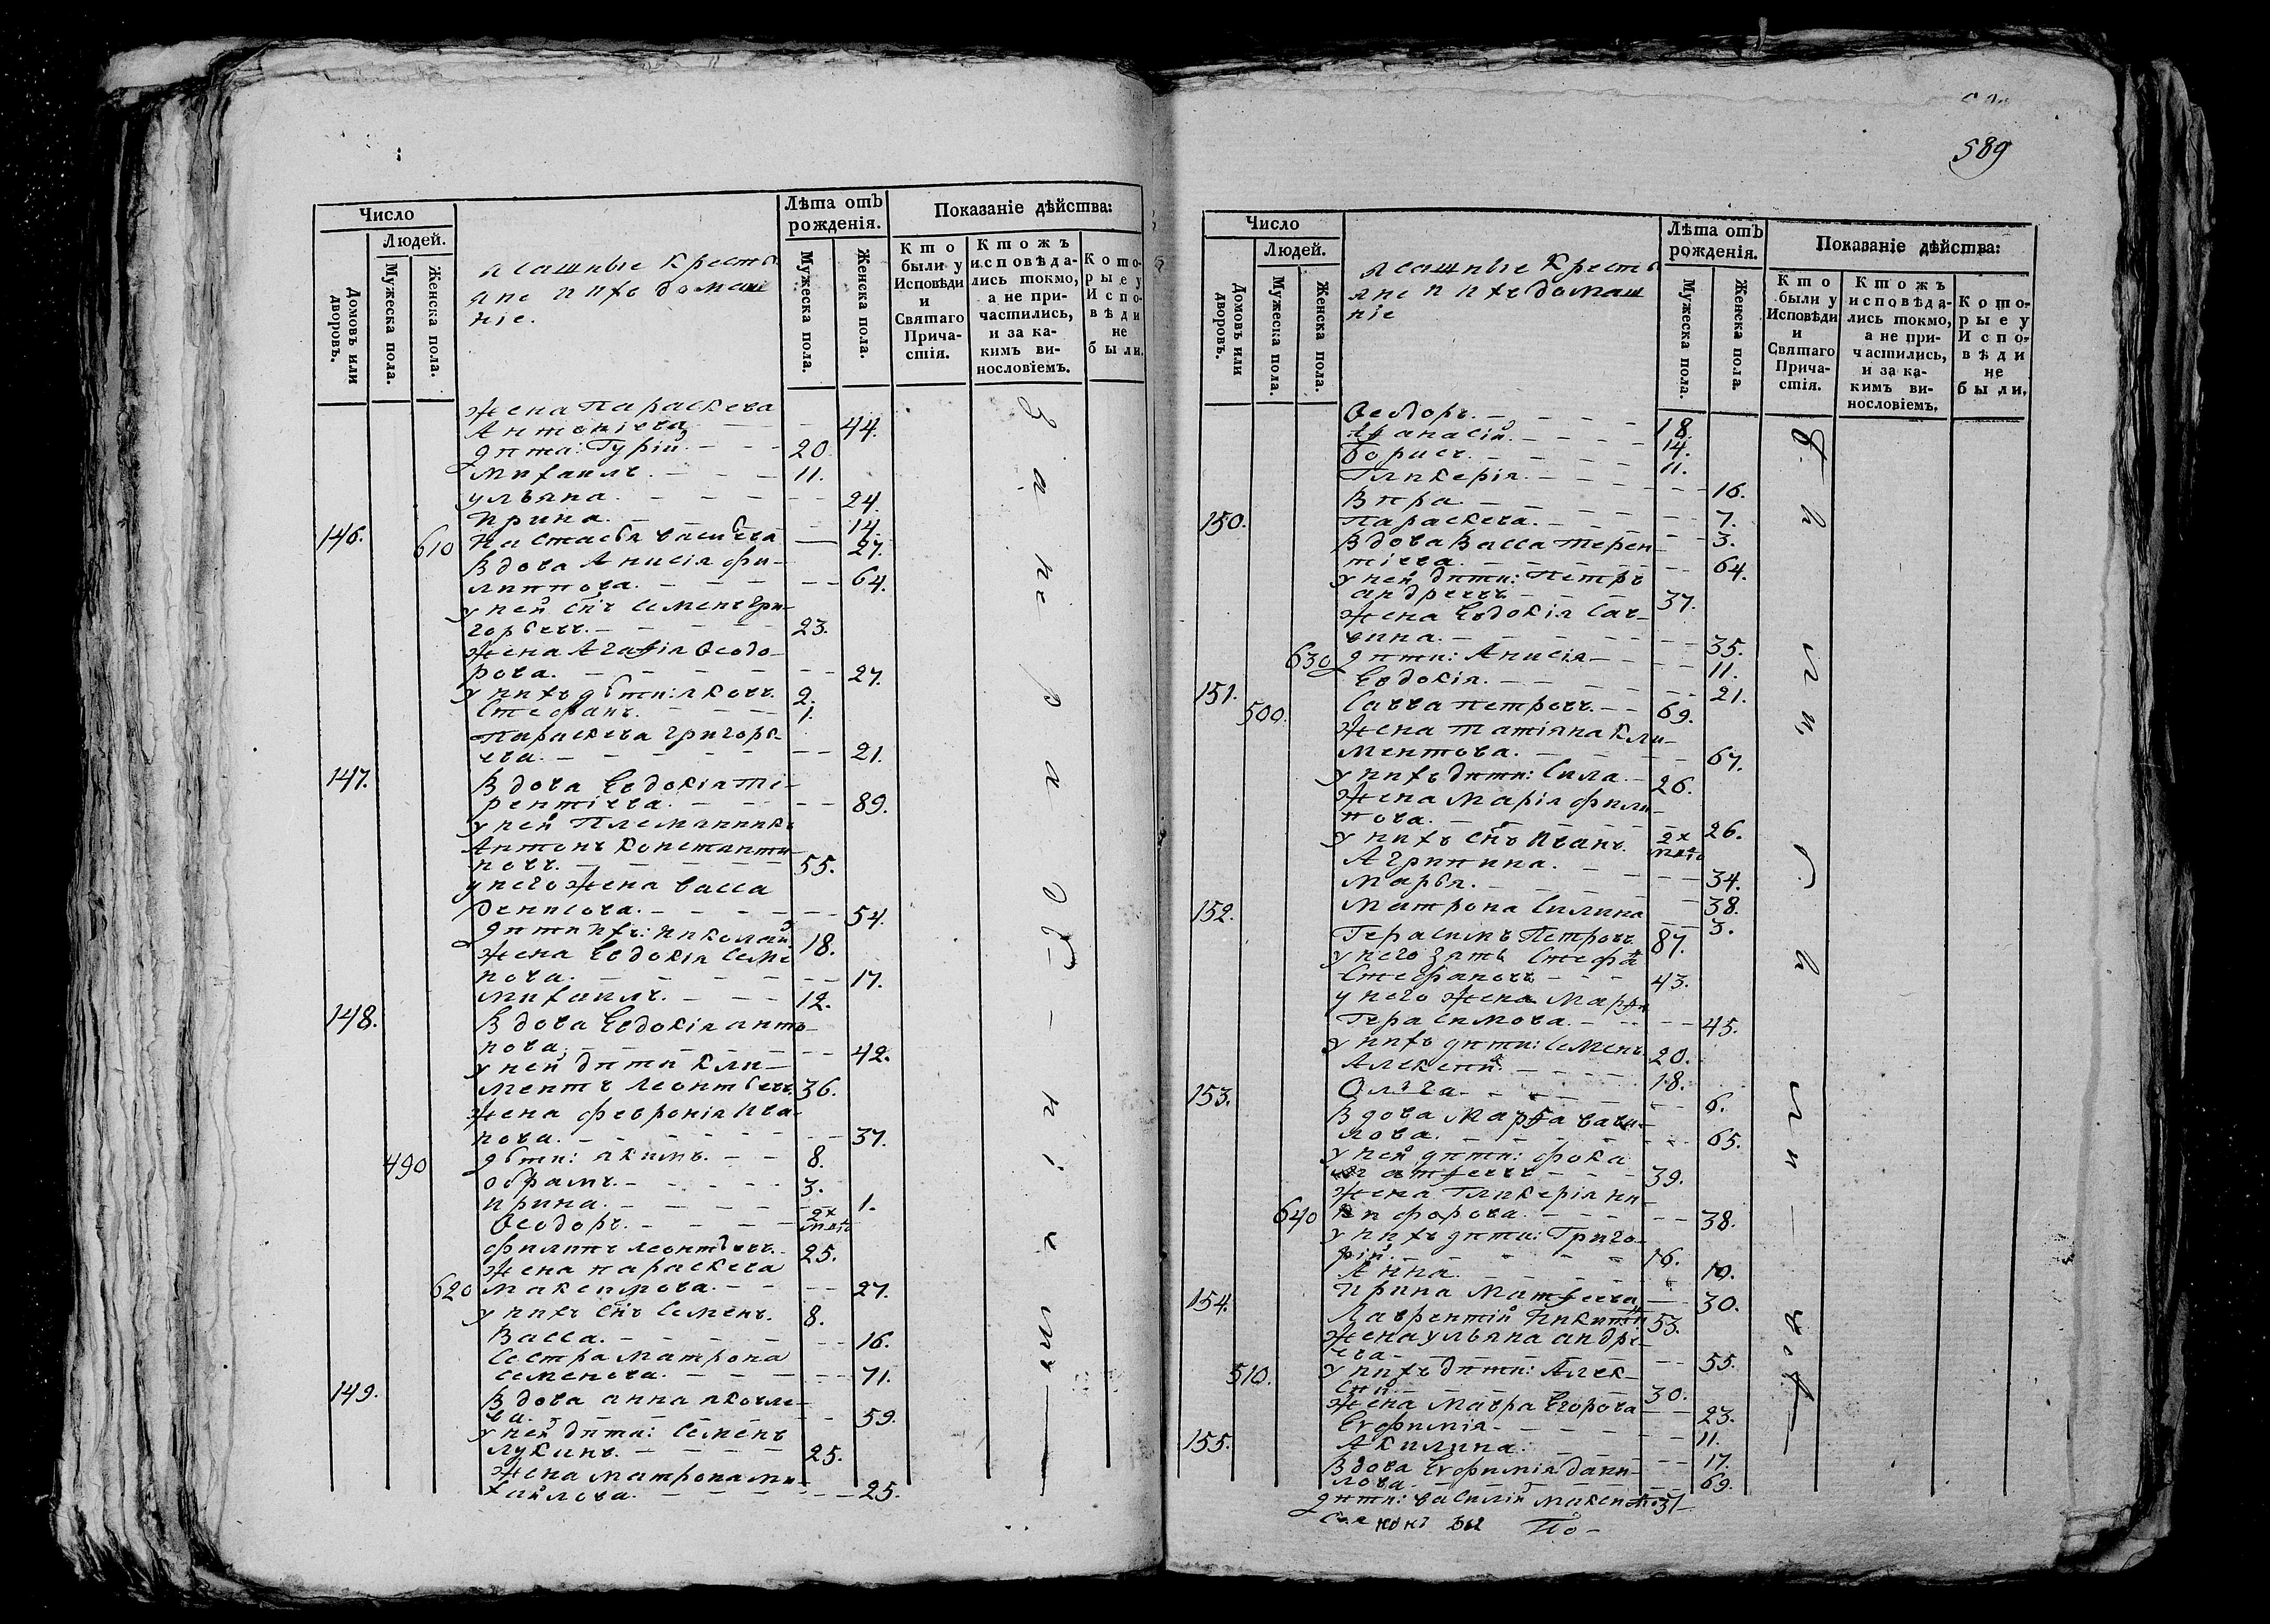 Число
Людей.
Домовъ или дворовъ.
Мужеска пола.
Женска пола.
Ясашные Кресть
яне и ихъ домаш
ніе.
Лѣта отъ рожденія.
Мужеска пола.
Женска пола.
Показаніе дѣйства:
Кто были у Исповѣди и Святаго Причастія.
Ктожъ исповѣдались токмо, а не причастились, и за какимъ винословіемъ.
Которые у Исповѣди не были.
жена Параскева
Антоніева 44.
дѣти: Гурій 20
Михаилъ 11.
Ульяна 24.
Ирина 14.
610 Настасья Васильева 27.
146. Вдова Анисія Фи-
липпова. 64.
у ней сынъ Семенъ Гри-
горьевъ. 23.
жена Агафія Ѳеодо-
рова. 27.
у нихъ дѣти: Яковъ 2.
Стефанъ. 1.
Параскева Григорь-
ева. 21.
147. Вдова Евдокія Те-
рентіева. 89.
у ней Племянникъ
Антонъ Константи-
новъ. 55.
у него жена Васса
Денисова. 54.
дѣти ихъ: Николай 18.
жена Евдокія Семе
нова. 17.
Михаилъ. 12.
148. Вдова Евдокія Анто-
нова. 42.
у ней дѣти Кли-
ментъ Леонтьевъ 36.
жена Февронія Ива-
нова. 37.
490 дѣти: Якимъ 8.
3.
Ирина. 1.
Ѳеодоръ. 2х
Филипъ Леонтьевъ. 25.
жена Параскева
620 Максимова. 27.
у нихъ сынъ Семенъ. 8.
Васса. 16.
Сестра Матрона
Семенова. 71.
149. Вдова Анна Яковле-
ва. 59.
у ней дѣти: Семенъ
Лукинъ. 25.
жена Матрона Ми-
хайлова. 25.
589
Число
Людей.
Домовъ или дворовъ.
Мужеска пола.
Женска пола.
Ясашные Кресть
яне и ихъ домаш
ніе
Лѣта отъ рожденія.
Мужеска пола.
Женска пола.
Показаніе дѣйства:
Кто были у Исповѣди и Святаго Причастія.
Ктожъ исповѣдались токмо, а не причастились, и за какимъ винословіемъ.
Которые у Исповѣди не были.
Ѳеодоръ. 18.
Афанасій 14.
Борисъ. 11.
Гликерія. 16.
Вѣра. 7.
Параскева. 3.
150. Вдова Васса Терен-
тіева. 64.
у ней дѣти: Петръ
Андреевъ 37.
жена Евдокія Сав-
вина. 35.
630 дѣти: Анисія 11.
Евдокія. 21.
151. 500. Савва Петровъ. 69.
жена Татіяна Кли-
ментова. 67.
у нихъ дѣти: Сила. 26.
жена Марія Фили-
пова. 26.
у нихъ сынъ Иванъ. 2х
Агрипина. 34.
Марья. 38.
Матрона Силина 3.
152. Герасимъ Петровъ 87.
у него зять Стефа
Стефановъ 43.
у него жена Марфа
Герасимова. 45.
у нихъ дѣти: Семенъ. 20.
Алексѣй 18.
Ольга. 6.
153. Вдова Марфа Вави-
лова. 65.
у ней дѣти: Фока
Матфеевъ 39.
жена Гликерія Ни-
640 кифорова. 38.
у нихъ дѣти: Григо-
рій. 16.
Анна. 10.
Ирина Матфеева 30.
154. Лаврентій Никити 53.
жена Ульяна Андре-
ева 55.
510. у нихъ дѣти: Алек-
сѣй 30.
жена Мавра Егорова 23.
Евфимія 11.
Акилина. 17.
155. Вдова Евфимія Дани-
лова. 69.
дѣти: Василій 31
По-